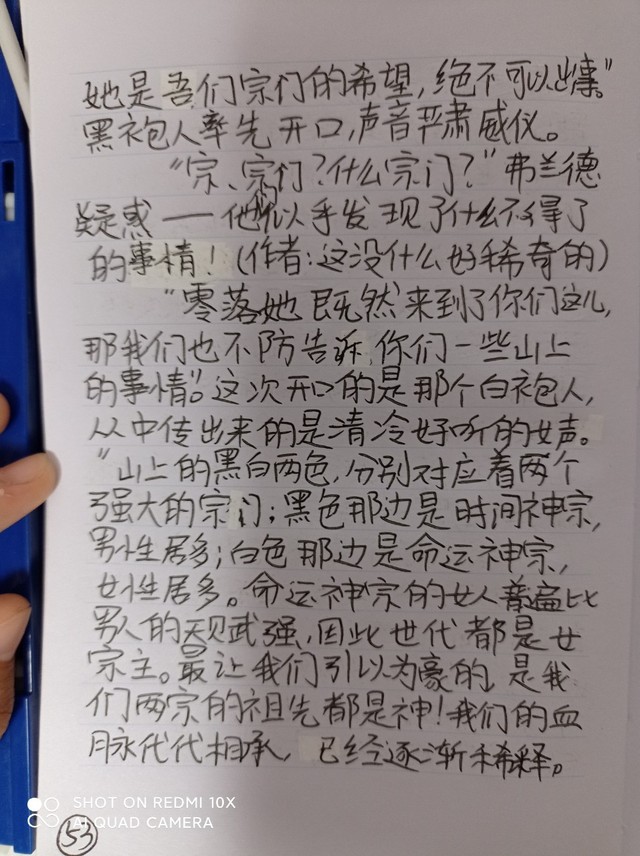 她是吾们宗门的希望，绝不可以出事。"
黑袍人率先开口，声音严肃威仪。
"宗、宗门？什么宗门？"弗兰德
疑惑——他似乎发现了什么不得了
的事情！（作者：这没什么好稀奇的）
"零落她既然来到了你们这儿，
那我们也不防告诉你们一些山上
的事情"。这次开口的是那个白袍人，
从中传出来的是清冷好听的女声。
"山上的黑白两色，分别对应着两个
强大的宗门；黑色那边是时间神宗，
男性居多；白色那边是命运神宗，
女性居多。命运神宗的女人普遍比
男人的天赋强，因此世代都是女
宗主。最让我们引以为豪的，是我
们两宗的祖先都是神！我们的血
脉代代相承，已经逐渐稀释。
SHOT ON REDMI 10X
AI QUAD CAMERA
53